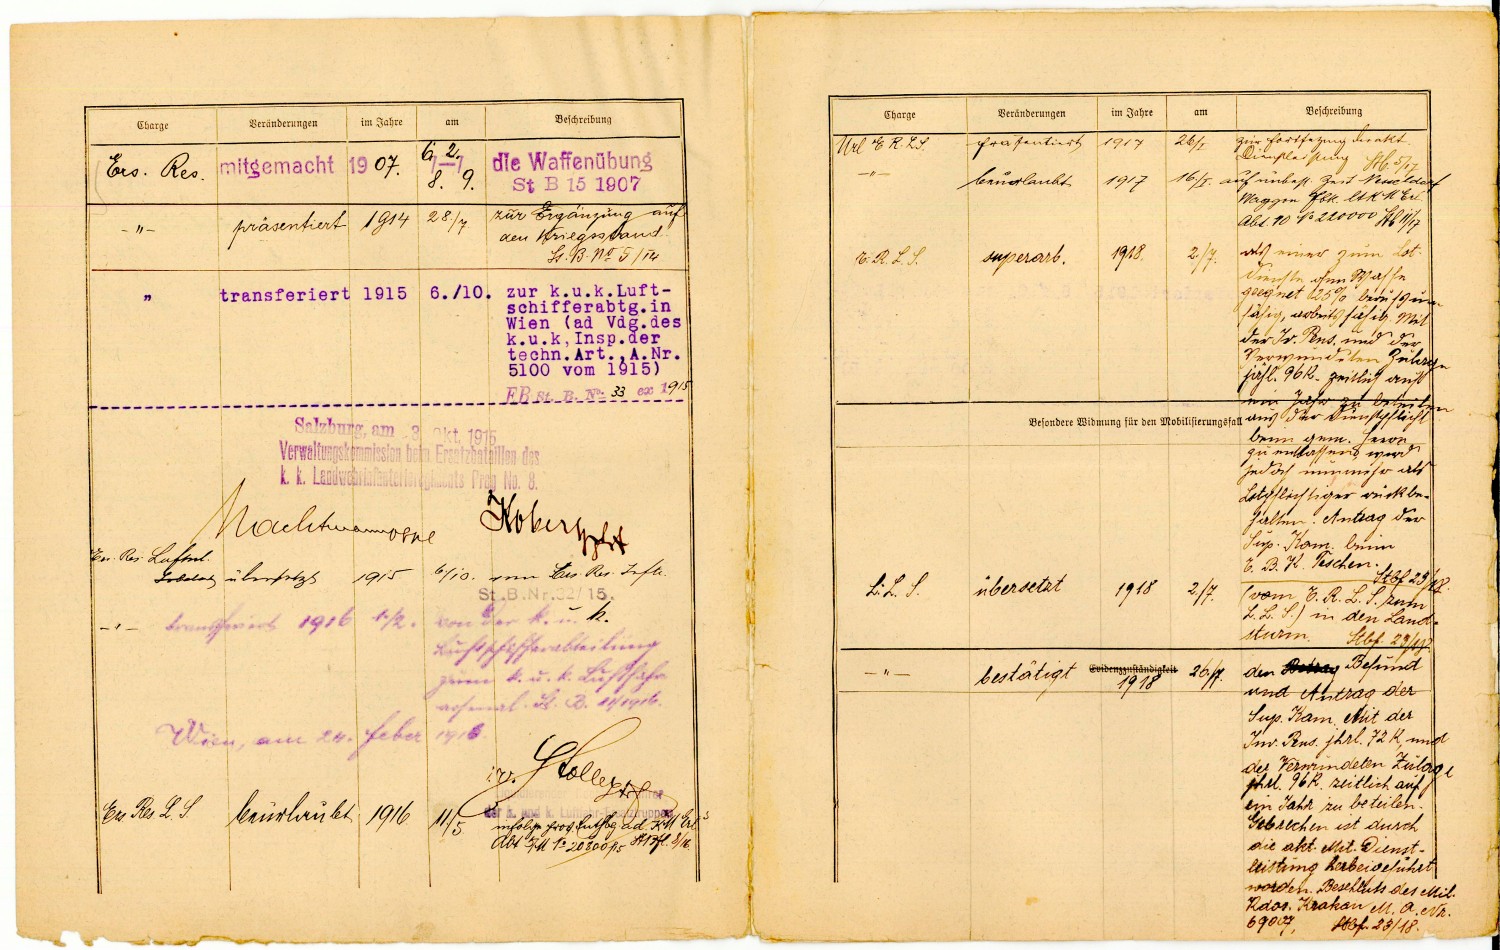 Charge Veränderungen im Jahre am Beschreibung
Ers. Res. mitgemacht 1907. 6/7 – 2./7 die Waffenübung
8. 9. St B 15 1907
–"– präsentiert 1914 28./7 zur Ergänzung auf
den Kriegsstand.
St. B. No 5/14
" transferiert 1915 6./10. zur k.u.k.Luft-
schifferabtg.in
Wien (ad Vdg.des
k.u.k,Insp.der
techn.Art.,A.Nr.
5100 vom 1915)
EB St. B. No. 33 ex 1915
Salzburg, am 3. Okt. 1915
Verwaltungskommission beim Ersatzbataillon des
k. k. Landwehrinfanterieregiments Prag No. 8.
Ers. Res. überssetzt 1915 6/10. zum Ers. Res. Inftr.
St.B.Nr.32/15.
–"– transferiert 1916 1./2. von der k. u. k.
Luftschifferabteilung
zum k. u. k. Luftfahr
arsenal. St. B. 11/1916.
Wien, am 24. Feber 1916.
Ers Res L. S. beurlaubt 1916 11/5
der k. und k. Luftfahr-Ersatztruppen
Abt
Charge Veränderungen im Jahre am Beschreibung
Url E R L S präsentiert 1917 26/I zur Fortsetzung der akt.
Dienstleistung Stb. 5/17
–"– beurlaubt 1917 16/I. auf unbest. Zeit Nesseldorf
Waggon Fbk. lt K M Erl.
Abt. 10 No 210000 Stb 11/17
E. R. L. S. superarb. 1918. 2./7. als einer zum Lst.
Dienste ohne Waffe
geeignet 25% berufsun-
fähig, arbeitsfähig. Mit
der Iv. Pens. und der
Verwundeten Zulage
jährl. 96 K. zeitlich auf
ein Jahr zu beteilen
aus der Dienstpflicht
Besondere Widmung für den Mobilisierungsfall
beim gem. Heere
zu entlassen, wird
jedoch nunmehr als
Lstpflichtiger rückbe-
halten. Antrag der
Sup. Kom. beim
E. B. K. Teschen.
Stbf 23/18.
L. L. S. übersetzt 1918 2/7. (vom E. R. L. S. zum
L. L. S.) in den Land-
sturm. Stbf. 23/18.
–"– bestätigt Evidenzzuständigkeit 1918 26./7. den Befund
und Antrag der
Sup. Kom. Mit der
Inv. Pens. jhrl. 72 K, und
der Verwundeten Zulage
jhrl. 96 K. zeitlich auf
ein Jahr zu beteilen.
Gebrechen ist durch
die akt. Mil. Dienst-
leistung herbeigeführt
worden. Beschluss des Mil.
Kdos. Krakau M. A. Nr.
69007, Stbf. 23/18.